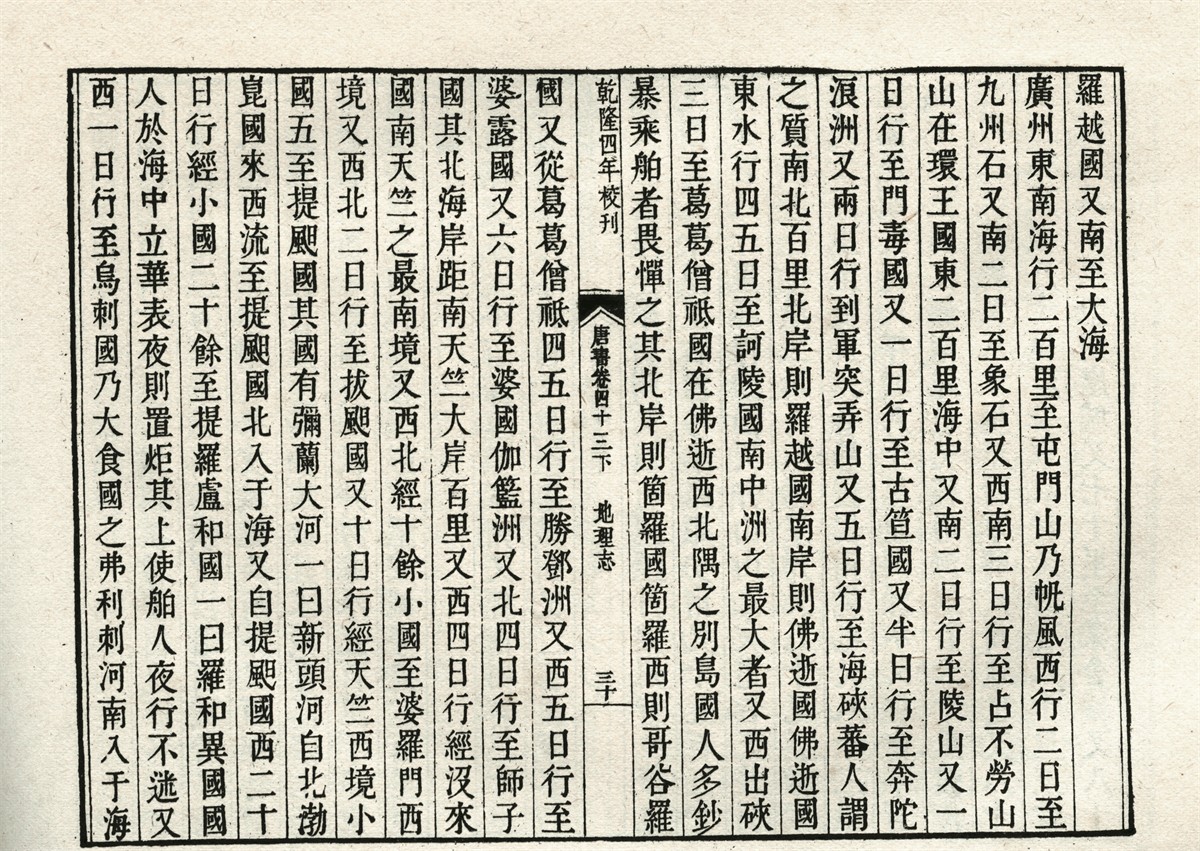 羅越國又南至大海
廣州東南海行二百里至屯門山乃帆風西行二日至
九州石又南二日至象石又西南三日行至占不勞山
山在環王國東二百里海中又南二日行至陵山又一
日行至門毒國又一日行至古笪國又半日行至奔陀
浪洲又兩日行到軍突弄山又五日行至海硤蕃人謂
之質南北百里北岸則羅越國南岸則佛逝國佛逝國
東水行四五日至訶陵國南中洲之最大者又西出硤
三日至葛葛僧祇國在佛逝西北隅之別島國人多鈔
暴乘舶者畏憚之其北岸則箇羅國箇羅西則哥谷羅
乾隆四年校刊
唐書卷四十三下 地理志 三十
國又從葛葛僧祇四五日行至勝鄧洲又西五日行至
婆露國又六日行至婆國伽籃洲又北四日行至師子
國其北海岸距南天竺大岸百里又西四日行經沒來
國南天竺之最南境又西北經十餘小國至婆羅門西
境又西北二日行至拔䫻國又十日行經天竺西境小
國五至提䫻國其國有彌蘭大河一曰新頭河自北渤
崑國來西流至提䫻國北入于海又自提䫻國西二十
日行經小國二十餘至提羅盧和國一曰羅和異國國
人於海中立華表夜則置炬其上使舶人夜行不迷又
西一日行至烏剌國乃大食國之弗利剌河南入于海